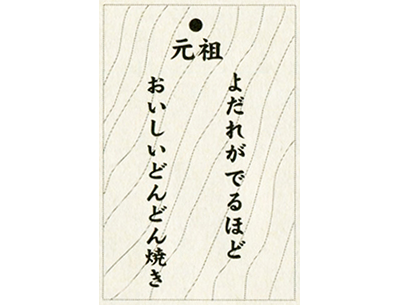 元祖
よだれがでるほど
おいしいどんどん焼き